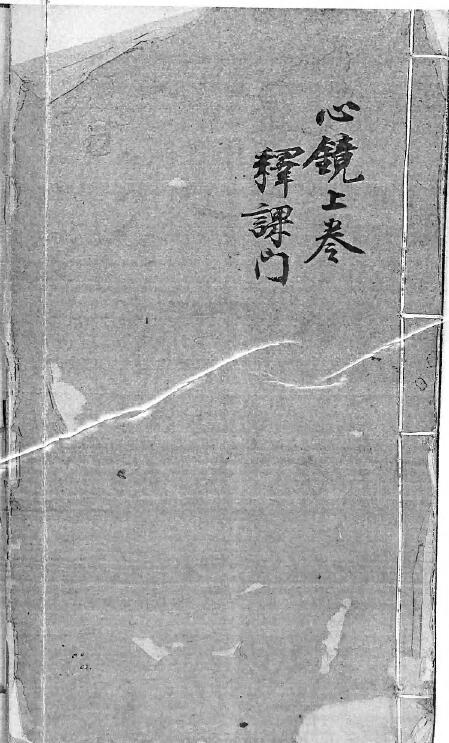 心鏡上卷
釋課門